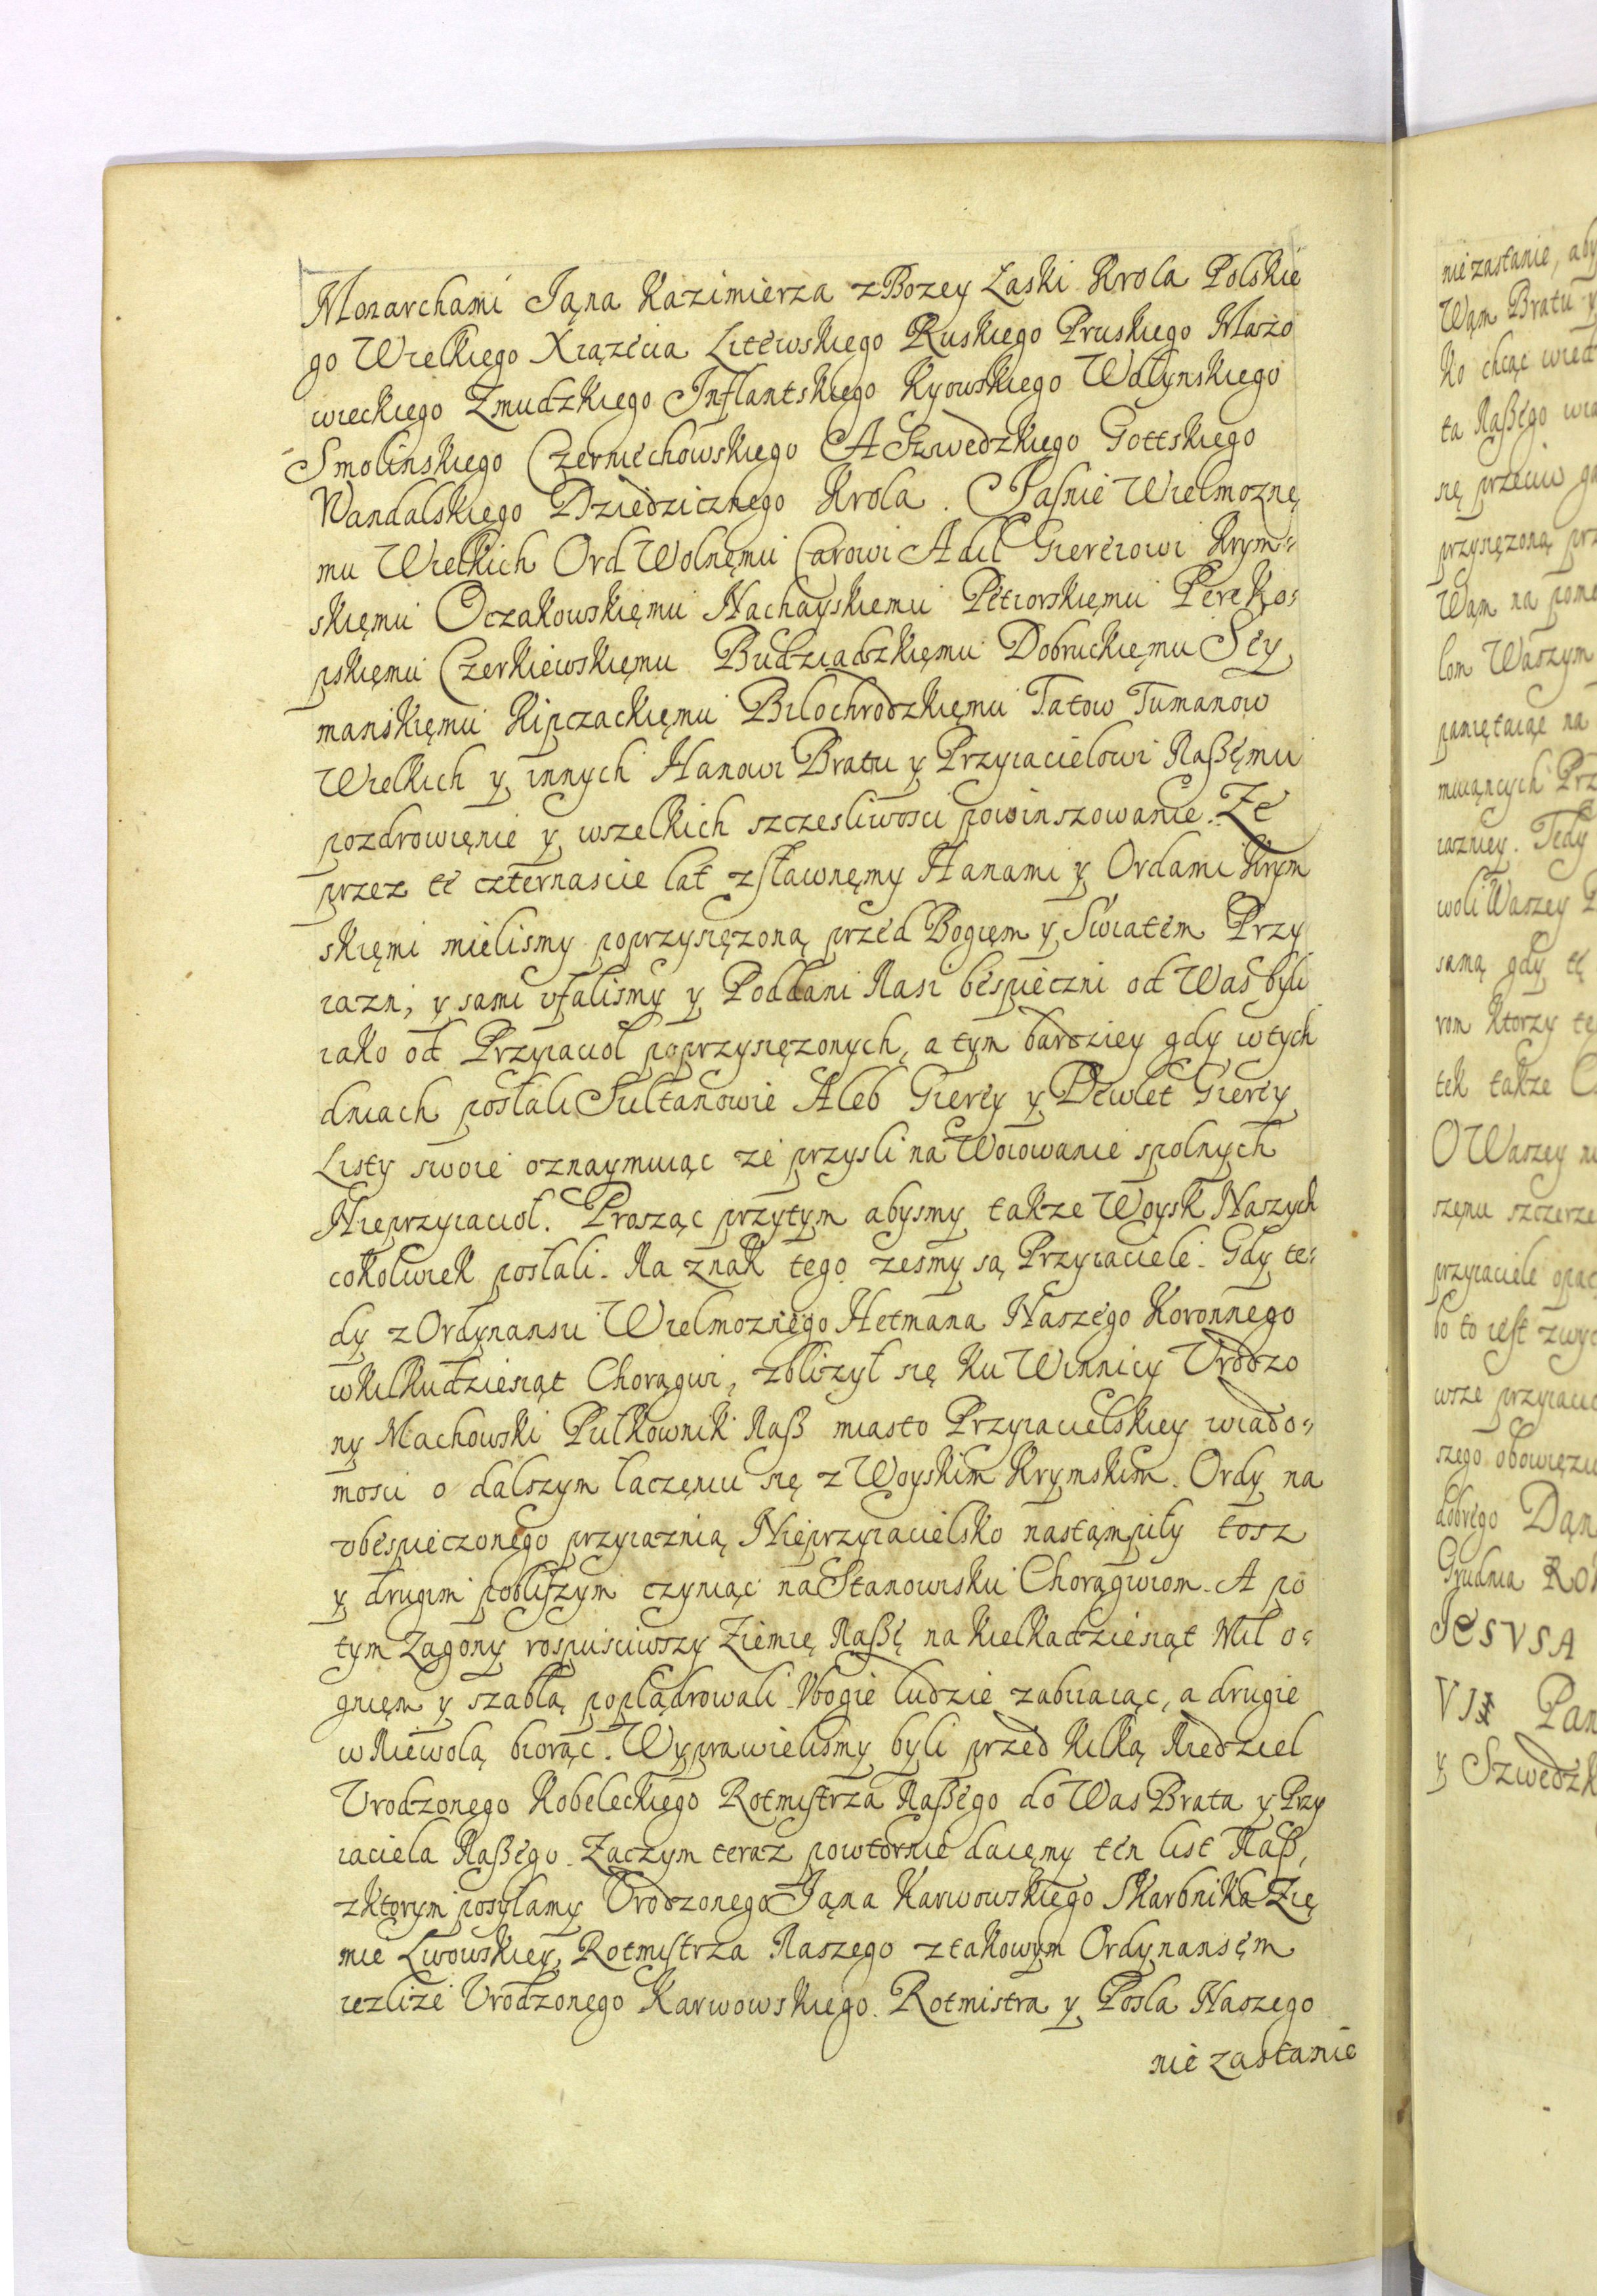 Monarchami Jąna Kazimierza z Bozey Łaski Krola Polskie
go Wielkiego Xiązęcia Litewskiego Ruskiego Pruskiego Mazo
wieckiego Zmudzkiego Inflantskiego Kyowskiego Wołynskiego
Smolinskiego Czerniechowskiego A Szwedzkiego Gottskiego
Wandalskięgo Dziedzicznego Krola. Jasnie Wielmoznę
mu Wielkich Ord Wolnęmu Carowi Adil Giereiowi Krym=
skięmu Oczakowskięmu Nachayskiemu Petiorskięmu Pereko=
pskięmu Czerkiewskięmu Budziadzkięmu Dobruckięmu Sey
manskięmu Kipczackięmu Biłochrodzkięmu Tatow Tumanow
Wielkich y innych Hanowi Bratu y Przyiacielowi Naßęmu
pozdrowięnie y wszelkich szczesliwosci powinszowanie. Ze
przez te czternascie lat z sławnęmy Hanami y Ordami Krym
skięmi mielismy poprzysięzoną przed Bogięm y Swiatem Przy
iazn, y sami vfalismy y Poddani Nasi bespieczni od Was byli
iako od Przyiacioł poprzysięzonych, a tym bardziey gdy w tych
dniach posłali Sultanowie Aleb Gierey y Dewlet Gierey
Listy swoie oznaymuiąc ze przysli na Woiowanie spolnych
Nieprzyiacioł. Prosząc przytym abysmy takze Woysk Naszych
cokolwiek posłali. Na znak tego zesmy są Przyiaciele. Gdy te=
dy z Ordynansu Wielmoznego Hetmana Naszego Koronnego
w kilkudziesiąt Chorągwi, zblizył się ku Winnicy Vrodzo
ny Machowski Pułkownik Naß miasto Przyiacielskiey wiado=
mosci o dalszym łaczęniu się z Woyskim Krymskim. Ordy na
vbespieczonego przyiaznią Nieprzyiacielsko nastąmpiły tosz
y drugim pobliszym czyniąc na Stanowisku Chorągwiom. A po
tym Zagony rospusciwszy Ziemię Naßę na kielkadziesiąt Mil o=
gnięm y szablą poplądrowali Vbogie ludzie zabiiaiąc, a drugie
w Niewolą biorąc. Wyprawielismy byli przed kilką Niedziel
Vrodzonego Kobeleckiego Rotmistrza Naßego do Was Brata y Przy
iaciela Naßego. Zaczym teraz powtornie daięmy ten list Naß,
z ktorym posyłamy Vrodzonego Jąna Karwowskiego Skarbnika Zię
mie Lwowskiey, Rotmistrza Naszego z takowym Ordynansęm
iezlize Vrodzonego Karwowskiego Rotmistra y Posła Naszego
nie zastanie
nie zastanie, aby
Wąm Bratu y
ko chcąc wied
ta Naßego wia
się przeciw
przysięzoną prz
Wąm na pomo
lom Waszym
pamiętaiąc na
muiąncych Prz
iazniey. Tedy
woli Waszey P
samą gdy tę
rom ktorzy te
tek takze
O Waszey
szęmu szczerze
przyiaciele opac
bo to iest zwyc
wsze przyiaciel
szego obowięzu
dobrego Dąn
Grudnia Rok
JESVSA
VII Pan
y Szwedzk